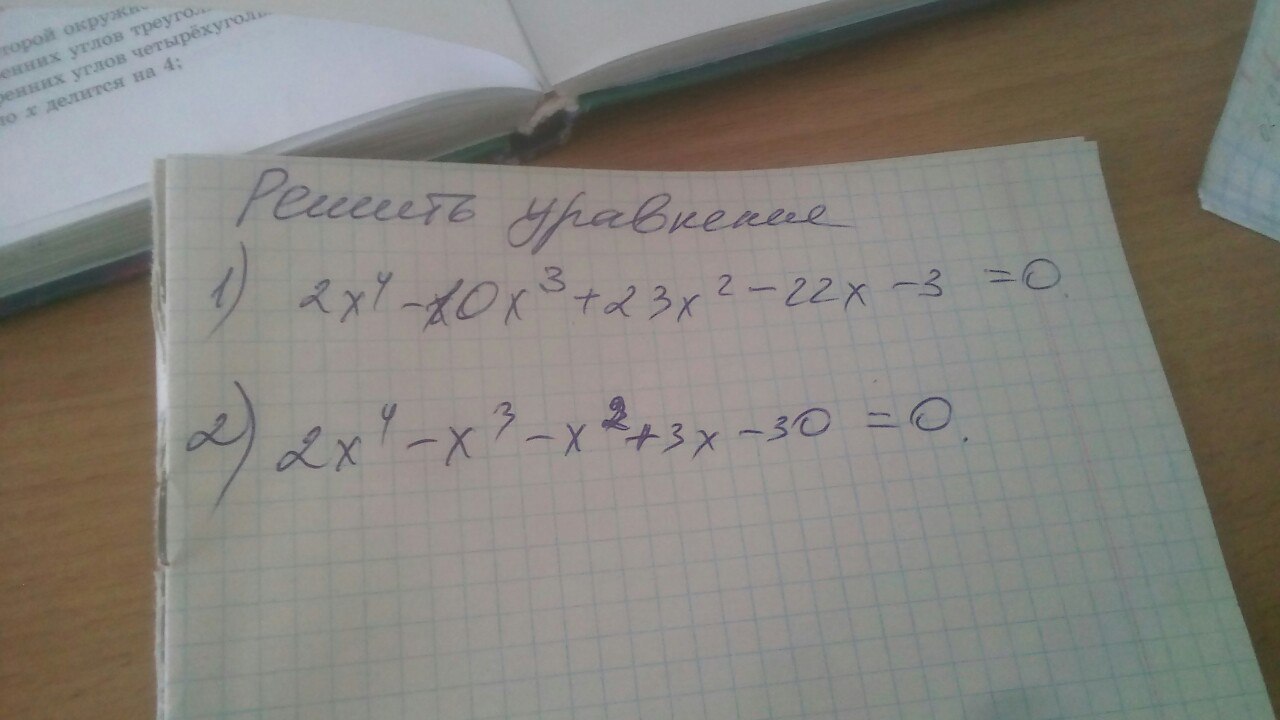 торой окружн
енних углов треугол
ренних углов четырёхугол
ло x делится на 4;
Решить уравнение
1) 2x⁴ - 10x³ + 23x² - 22x - 3 = 0.
2) 2x⁴ - x³ - x² + 3x - 30 = 0.